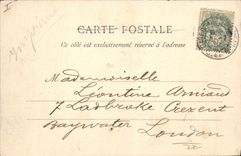 CARTE POSTALE
Ce côté est exclusivement réservé à l'adresse
Mademoiselle
Léontine Arniaud
7 Ladbroke Crezent
Bayswater
London